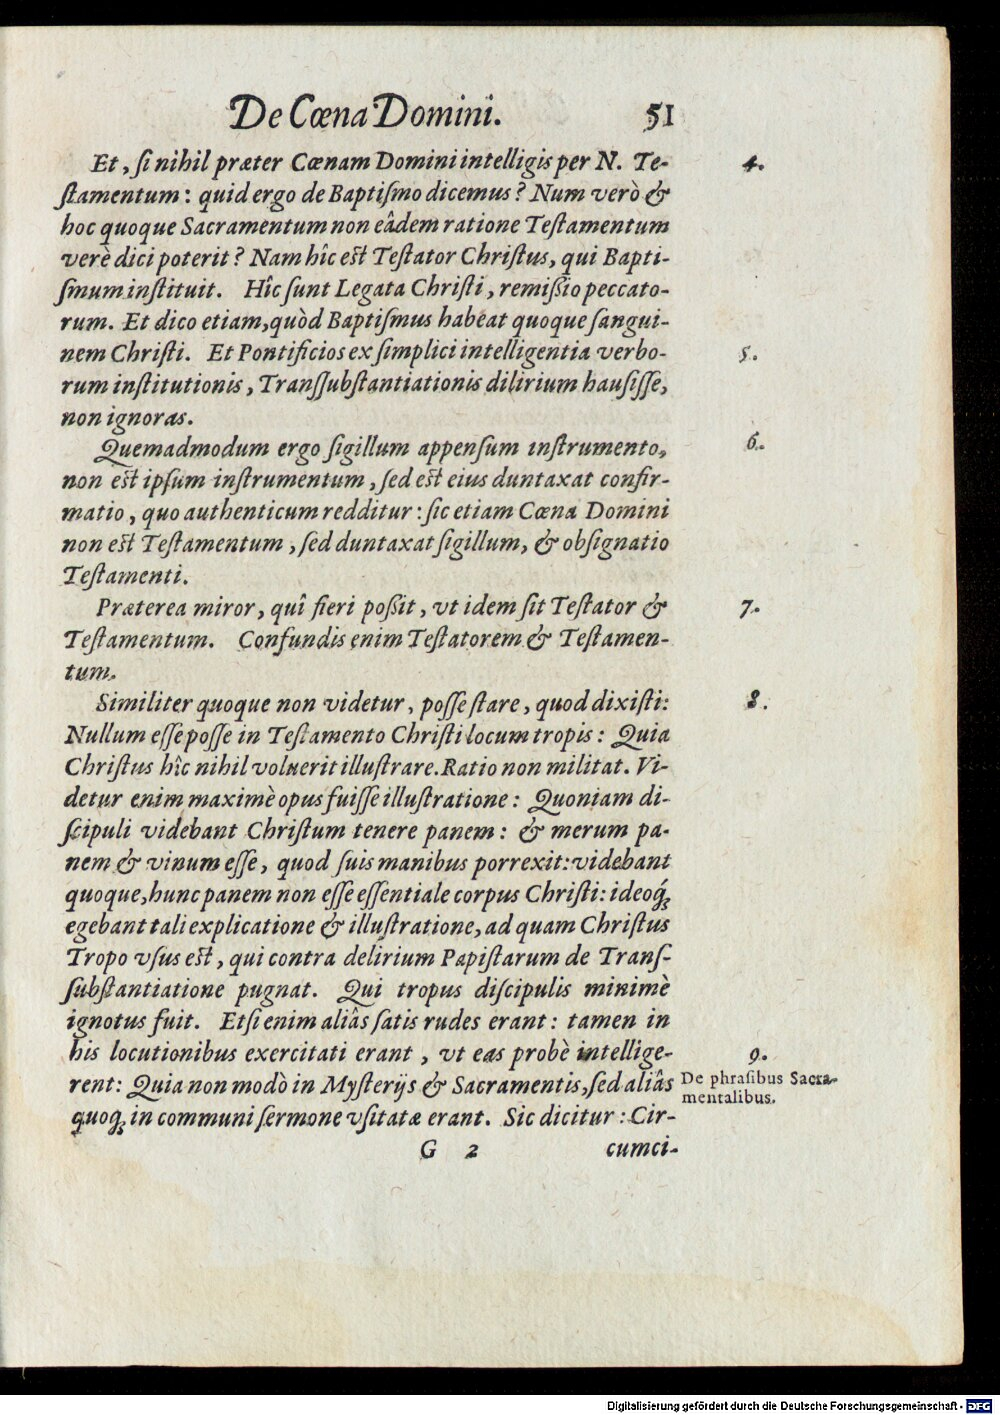 De Cœna Domini. 51
Et, ſi nihil præter Cœnam Domini intelligis per N. Te- 4.
ſtamentum: quid ergo de Baptiſmo dicemus? Num verò &
hoc quoque Sacramentum non eâdem ratione Teſtamentum
verè dici poterit? Nam hîc est Teſtator Chriſtus, qui Bapti-
ſmum inſtituit. Hîc ſunt Legata Chriſti, remißio peccato-
rum. Et dico etiam, quòd Baptiſmus habeat quoque ſangui-
nem Chriſti. Et Pontificios ex ſimplici intelligentia verbo- 5.
rum inſtitutionis, Tranſſubſtantiationis dilirium hauſiſſe,
non ignoras.
Quemadmodum ergo ſigillum appenſum inſtrumento, 6.
non est ipſum inſtrumentum, ſed est eius duntaxat confir-
matio, quo authenticum redditur: ſic etiam Cœna Domini
non est Teſtamentum, ſed duntaxat ſigillum, & obſignatio
Teſtamenti.
Præterea miror, quî fieri poßit, vt idem ſit Teſtator & 7.
Teſtamentum. Confundis enim Teſtatorem & Teſtamen-
tum.
Similiter quoque non videtur, poſſe ſtare, quod dixiſti: 8.
Nullum eſſe poſſe in Teſtamento Chriſti locum tropis: Quia
Chriſtus hîc nihil voluerit illuſtrare. Ratio non militat. Vi-
detur enim maximè opus fuiſſe illuſtratione: Quoniam di-
ſcipuli videbant Chriſtum tenere panem: & merum pa-
nem & vinum eſſe, quod ſuis manibus porrexit: videbant
quoque, hunc panem non eſſe eſſentiale corpus Chriſti: ideoq́;
egebant tali explicatione & illuſtratione, ad quam Chriſtus
Tropo vſus est, qui contra delirium Papiſtarum de Tranſ-
ſubſtantiatione pugnat. Qui tropus diſcipulis minimè
ignotus fuit. Etſi enim aliâs ſatis rudes erant: tamen in
his locutionibus exercitati erant, vt eas probè intellige- 9.
rent: Quia non modò in Myſterijs & Sacramentis, ſed aliâs De phraſibus Sacra-
mentalibus.
quoq; in communi ſermone vſitatæ erant. Sic dicitur: Cir-
G 2 cumci-
Digitalisierung gefördert durch die Deutsche Forschungsgemeinschaft - DFG